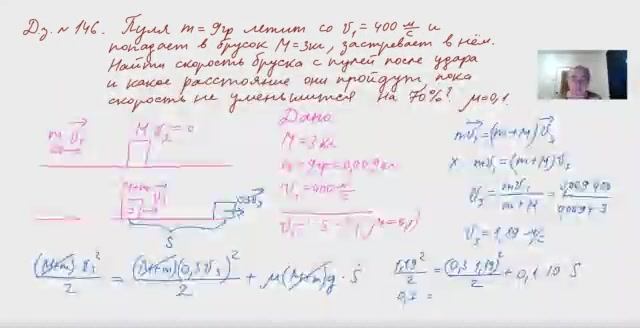 Дз. № 146. Пуля m = 9гр летит со v₁ = 400 м/с и
попадает в брусок M = 3кг, застревает в нём.
Найти скорость бруска с пулей после удара
и какое расстояние они пройдут, пока
скорость не уменьшится на 70%? μ=0,1
m v₁ M v₂ = 0
M+m
S
Дано
M = 3 кг
m = 9гр = 0,009 кг
v₁ = 400 м/с
mv₁ = (m+M) v₃
x mv₁ = (m+M) v₃
v₃ = mv₁/(m+M) = 0,009·400/(0,009+3)
v₃ = 1,19 м/с
(M+m) v₃²/2 = (M+m)(0,3 v₃)²/2 + μ(M+m)g · S
1,19²/2 = (0,3·1,19)²/2 + 0,1·10·S